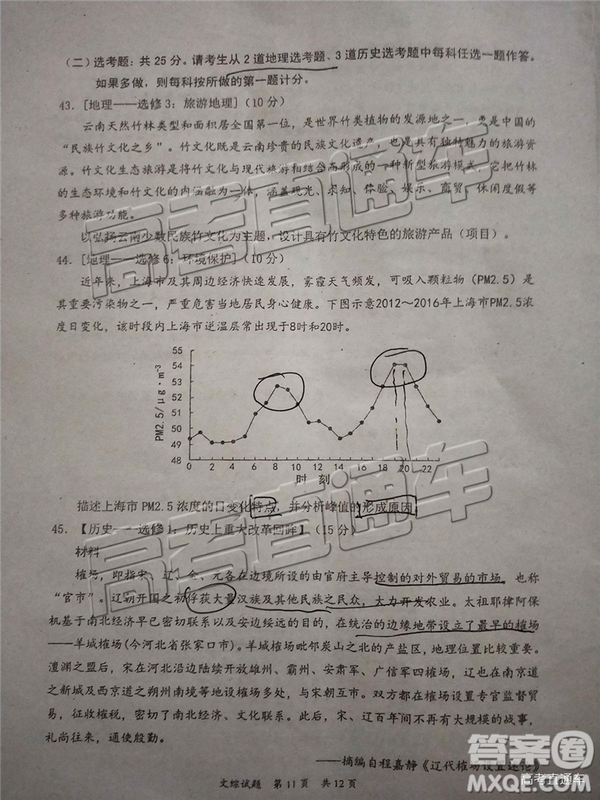 (二)选考题：共25分。请考生从2道地理选考题、3道历史选考题中每科任选一题作答。
如果多做，则每科按所做的第一题计分。
43. [地理——选修3：旅游地理]（10分）
云南天然竹林类型和面积居全国第一位，是世界竹类植物的发源地之一，也是中国的
“民族竹文化之乡”。竹文化既是云南珍贵的民族文化遗产，也是具有独特魅力的旅游资
源。竹文化生态旅游是将竹文化与现代旅游活动相结合而形成的一种新型旅游模式，它把竹林
的生态环境和竹文化的内涵融为一体，涵盖观光、求知、体验、娱乐、商贸、休闲度假等
多种旅游功能。
以弘扬云南少数民族竹文化为主题，设计具有竹文化特色的旅游产品（项目）。
44. [地理——选修6：环境保护]（10分）
近年来，上海市及其周边经济快速发展，雾霾天气频发，可吸入颗粒物（PM2.5）是
其重要污染物之一，严重危害当地居民身心健康。下图示意2012～2016年上海市PM2.5浓
度日变化，该时段内上海市逆温层常出现于8时和20时。
PM2.5/μg·m⁻³
55
54
53
52
51
50
49
48
0 2 4 6 8 10 12 14 16 18 20 22
时 刻
描述上海市PM2.5浓度的日变化特点，并分析峰值的形成原因。
45. 【历史——选修1：历史上重大改革回眸】（15分）
材料
榷场，即指宋、辽、金、元各在边境所设的由官府主导控制的对外贸易的市场，也称
“官市”。辽朝开国之初俘获大量汉族及其他民族之民众，大力开发农业。太祖耶律阿保
机基于南北经济早已密切联系以及安边绥远的目的，在统治的边缘地带设立了最早的榷场
——羊城榷场(今河北省张家口市)。羊城榷场毗邻炭山之北的产盐区，地理位置重要。
澶渊之盟后，宋在河北沿边陆续开放雄州、霸州、安肃军、广信军四榷场，辽也在南京道
之新城及西京道之朔州南境等地设榷场多处，与宋朝互市。双方都在榷场设置专官监督贸
易，征收榷税，密切了南北经济、文化联系。此后，宋、辽百年内不再有大规模的战事，
礼尚往来，通使殷勤。
——摘编自程嘉静《辽代榷场设置述论》
文综试题 第11页 共12页
高考直通车
高考直通车
答案卷
高考直通车